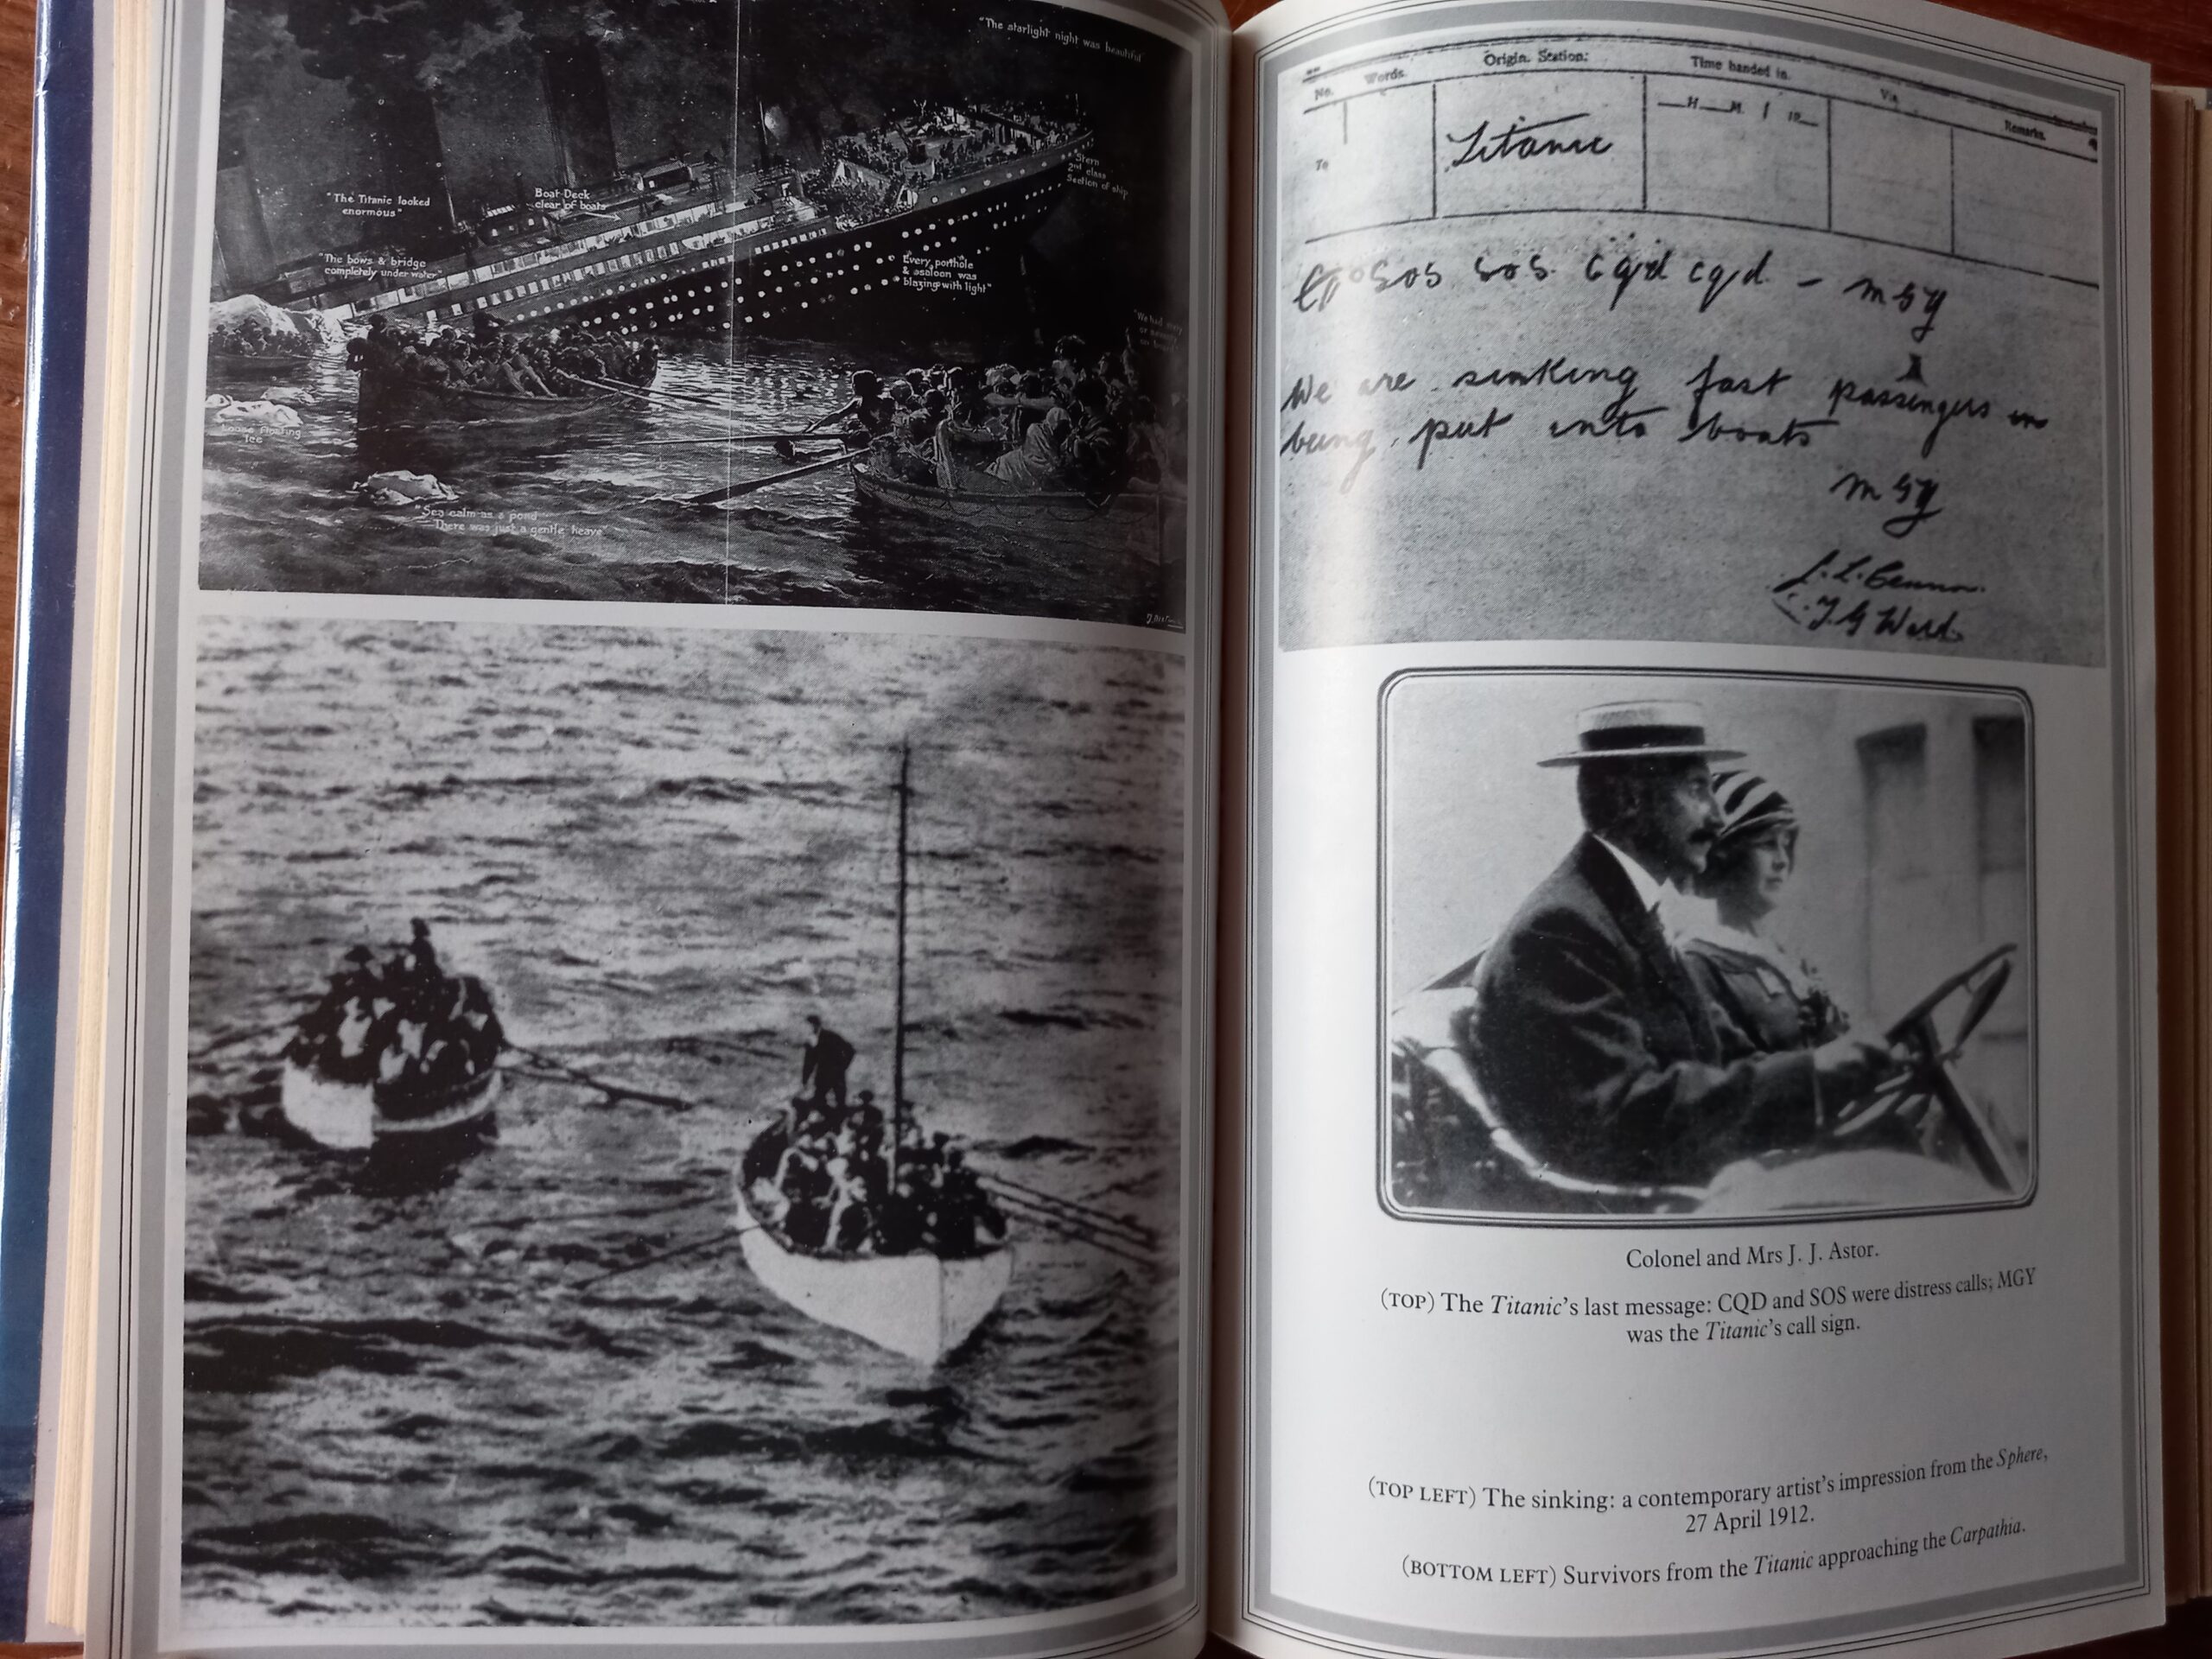 "The starlight night was beautiful"
"The Titanic looked
enormous"
Boat Deck
clear of boats
Stern
2nd class
Section of ship
"The bows & bridge
completely under water"
"Every porthole
& saloon was
blazing with light"
"We had
Loose floating
Ice
"Sea calm as a pond
There was just a gentle heave"
No. Words. Origin. Station: Time handed in. Via Remarks.
To Titanic H M 19
SOS SOS cqd cqd - MGY
We are sinking fast passengers
being put into boats
MGY
Colonel and Mrs J. J. Astor.
(TOP) The Titanic's last message: CQD and SOS were distress calls; MGY
was the Titanic's call sign.
(TOP LEFT) The sinking: a contemporary artist's impression from the Sphere,
27 April 1912.
(BOTTOM LEFT) Survivors from the Titanic approaching the Carpathia.